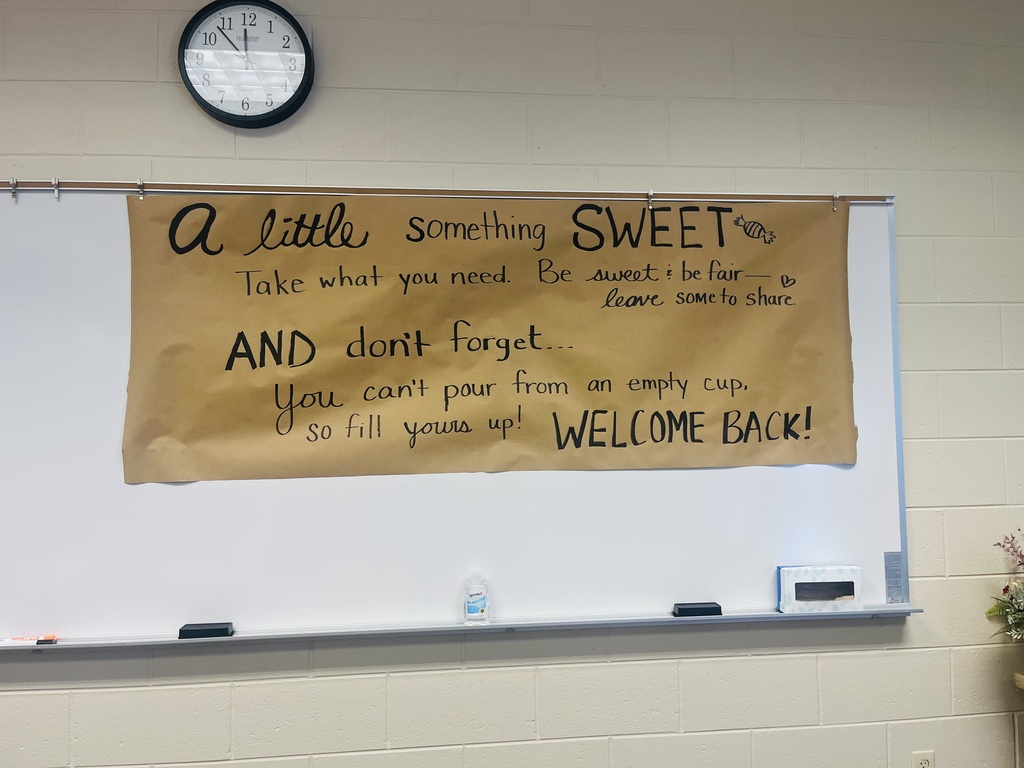 11 12 1
10 2
9 3
8 4
7 6 5
A little something SWEET
Take what you need. Be sweet & be fair—
leave some to share
AND don't forget...
You can't pour from an empty cup,
so fill yours up! WELCOME BACK!